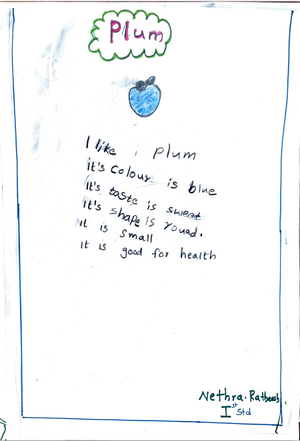 Plum
I like plum
it's colour is blue
it's taste is sweat
it's shape is rouad.
it is small
it is good for health
Nethra.
I st Std